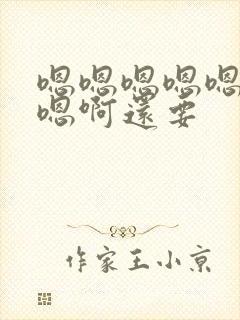 嗯嗯嗯嗯嗯
嗯啊還要
作家王小京